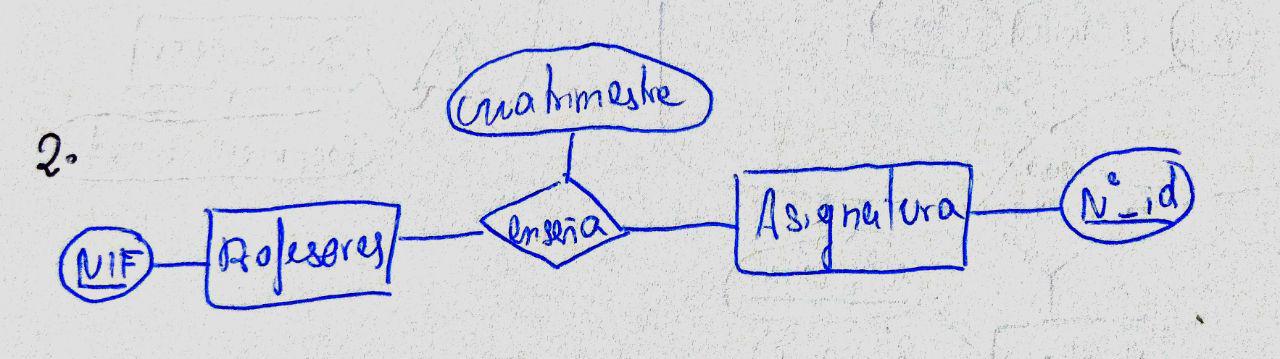 cuatrimestre
2.
NIF
Profesores
enseña
Asignatura
Nº_id